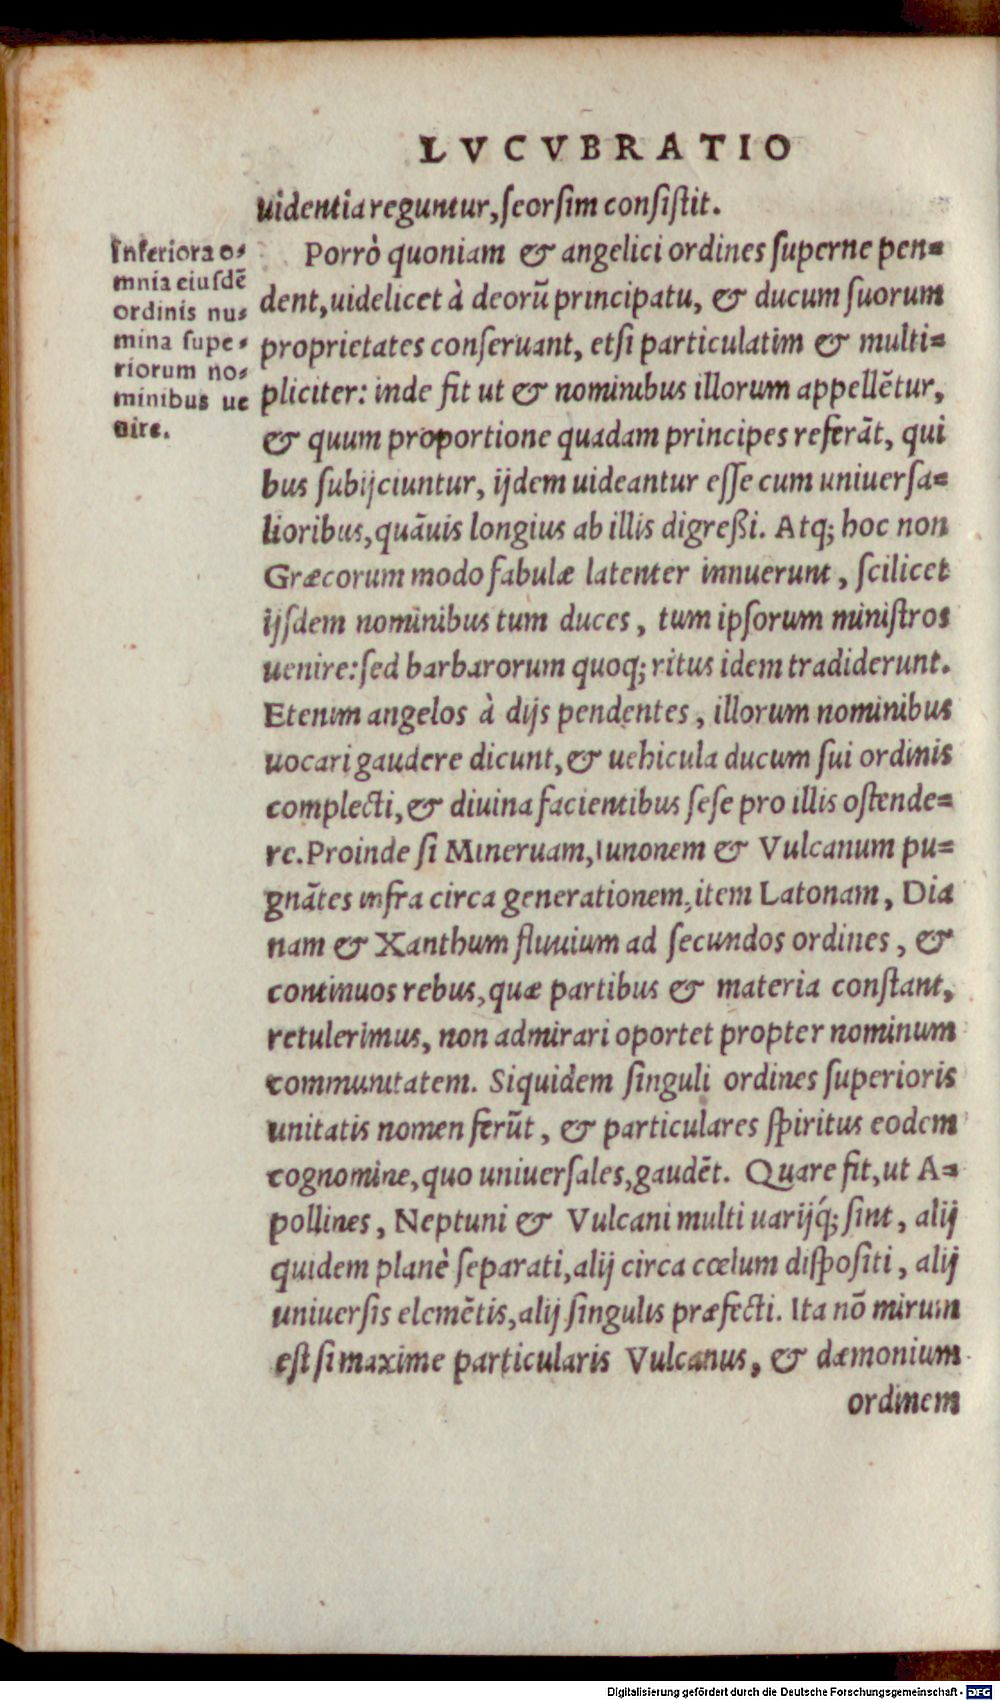 LVCVBRATIO
uidentia reguntur, seorsim consistit.
Inferiora o-
mnia eiusdē
ordinis nu-
mina supe-
riorum no-
minibus ue
nire.
Porrò quoniam & angelici ordines superne pen-
dent, uidelicet à deorū principatu, & ducum suorum
proprietates conseruant, etsi particulatim & multi-
pliciter: inde fit ut & nominibus illorum appellētur,
& quum proportione quadam principes referāt, qui
bus subijciuntur, ijdem uideantur esse cum uniuersa-
lioribus, quāuis longius ab illis digreßi. Atq; hoc non
Græcorum modo fabulæ latenter innuerunt, scilicet
ijsdem nominibus tum duces, tum ipsorum ministros
uenire: sed barbarorum quoq; ritus idem tradiderunt.
Etenim angelos à dijs pendentes, illorum nominibus
uocari gaudere dicunt, & uehicula ducum sui ordinis
complecti, & diuina facientibus sese pro illis ostende-
re. Proinde si Mineruam, Iunonem & Vulcanum pu-
gnātes infra circa generationem, item Latonam, Dia
nam & Xanthum fluuium ad secundos ordines, &
continuos rebus, quæ partibus & materia constant,
retulerimus, non admirari oportet propter nominum
communitatem. Siquidem singuli ordines superioris
unitatis nomen ferūt, & particulares spiritus eodem
cognomine, quo uniuersales, gaudēt. Quare fit, ut A-
pollines, Neptuni & Vulcani multi uarijq́; sint, alij
quidem planè separati, alij circa cœlum dispositi, alij
uniuersis elemētis, alij singulis præfecti. Ita nō mirum
est si maxime particularis Vulcanus, & dæmonium
ordinem
Digitalisierung gefördert durch die Deutsche Forschungsgemeinschaft - DFG